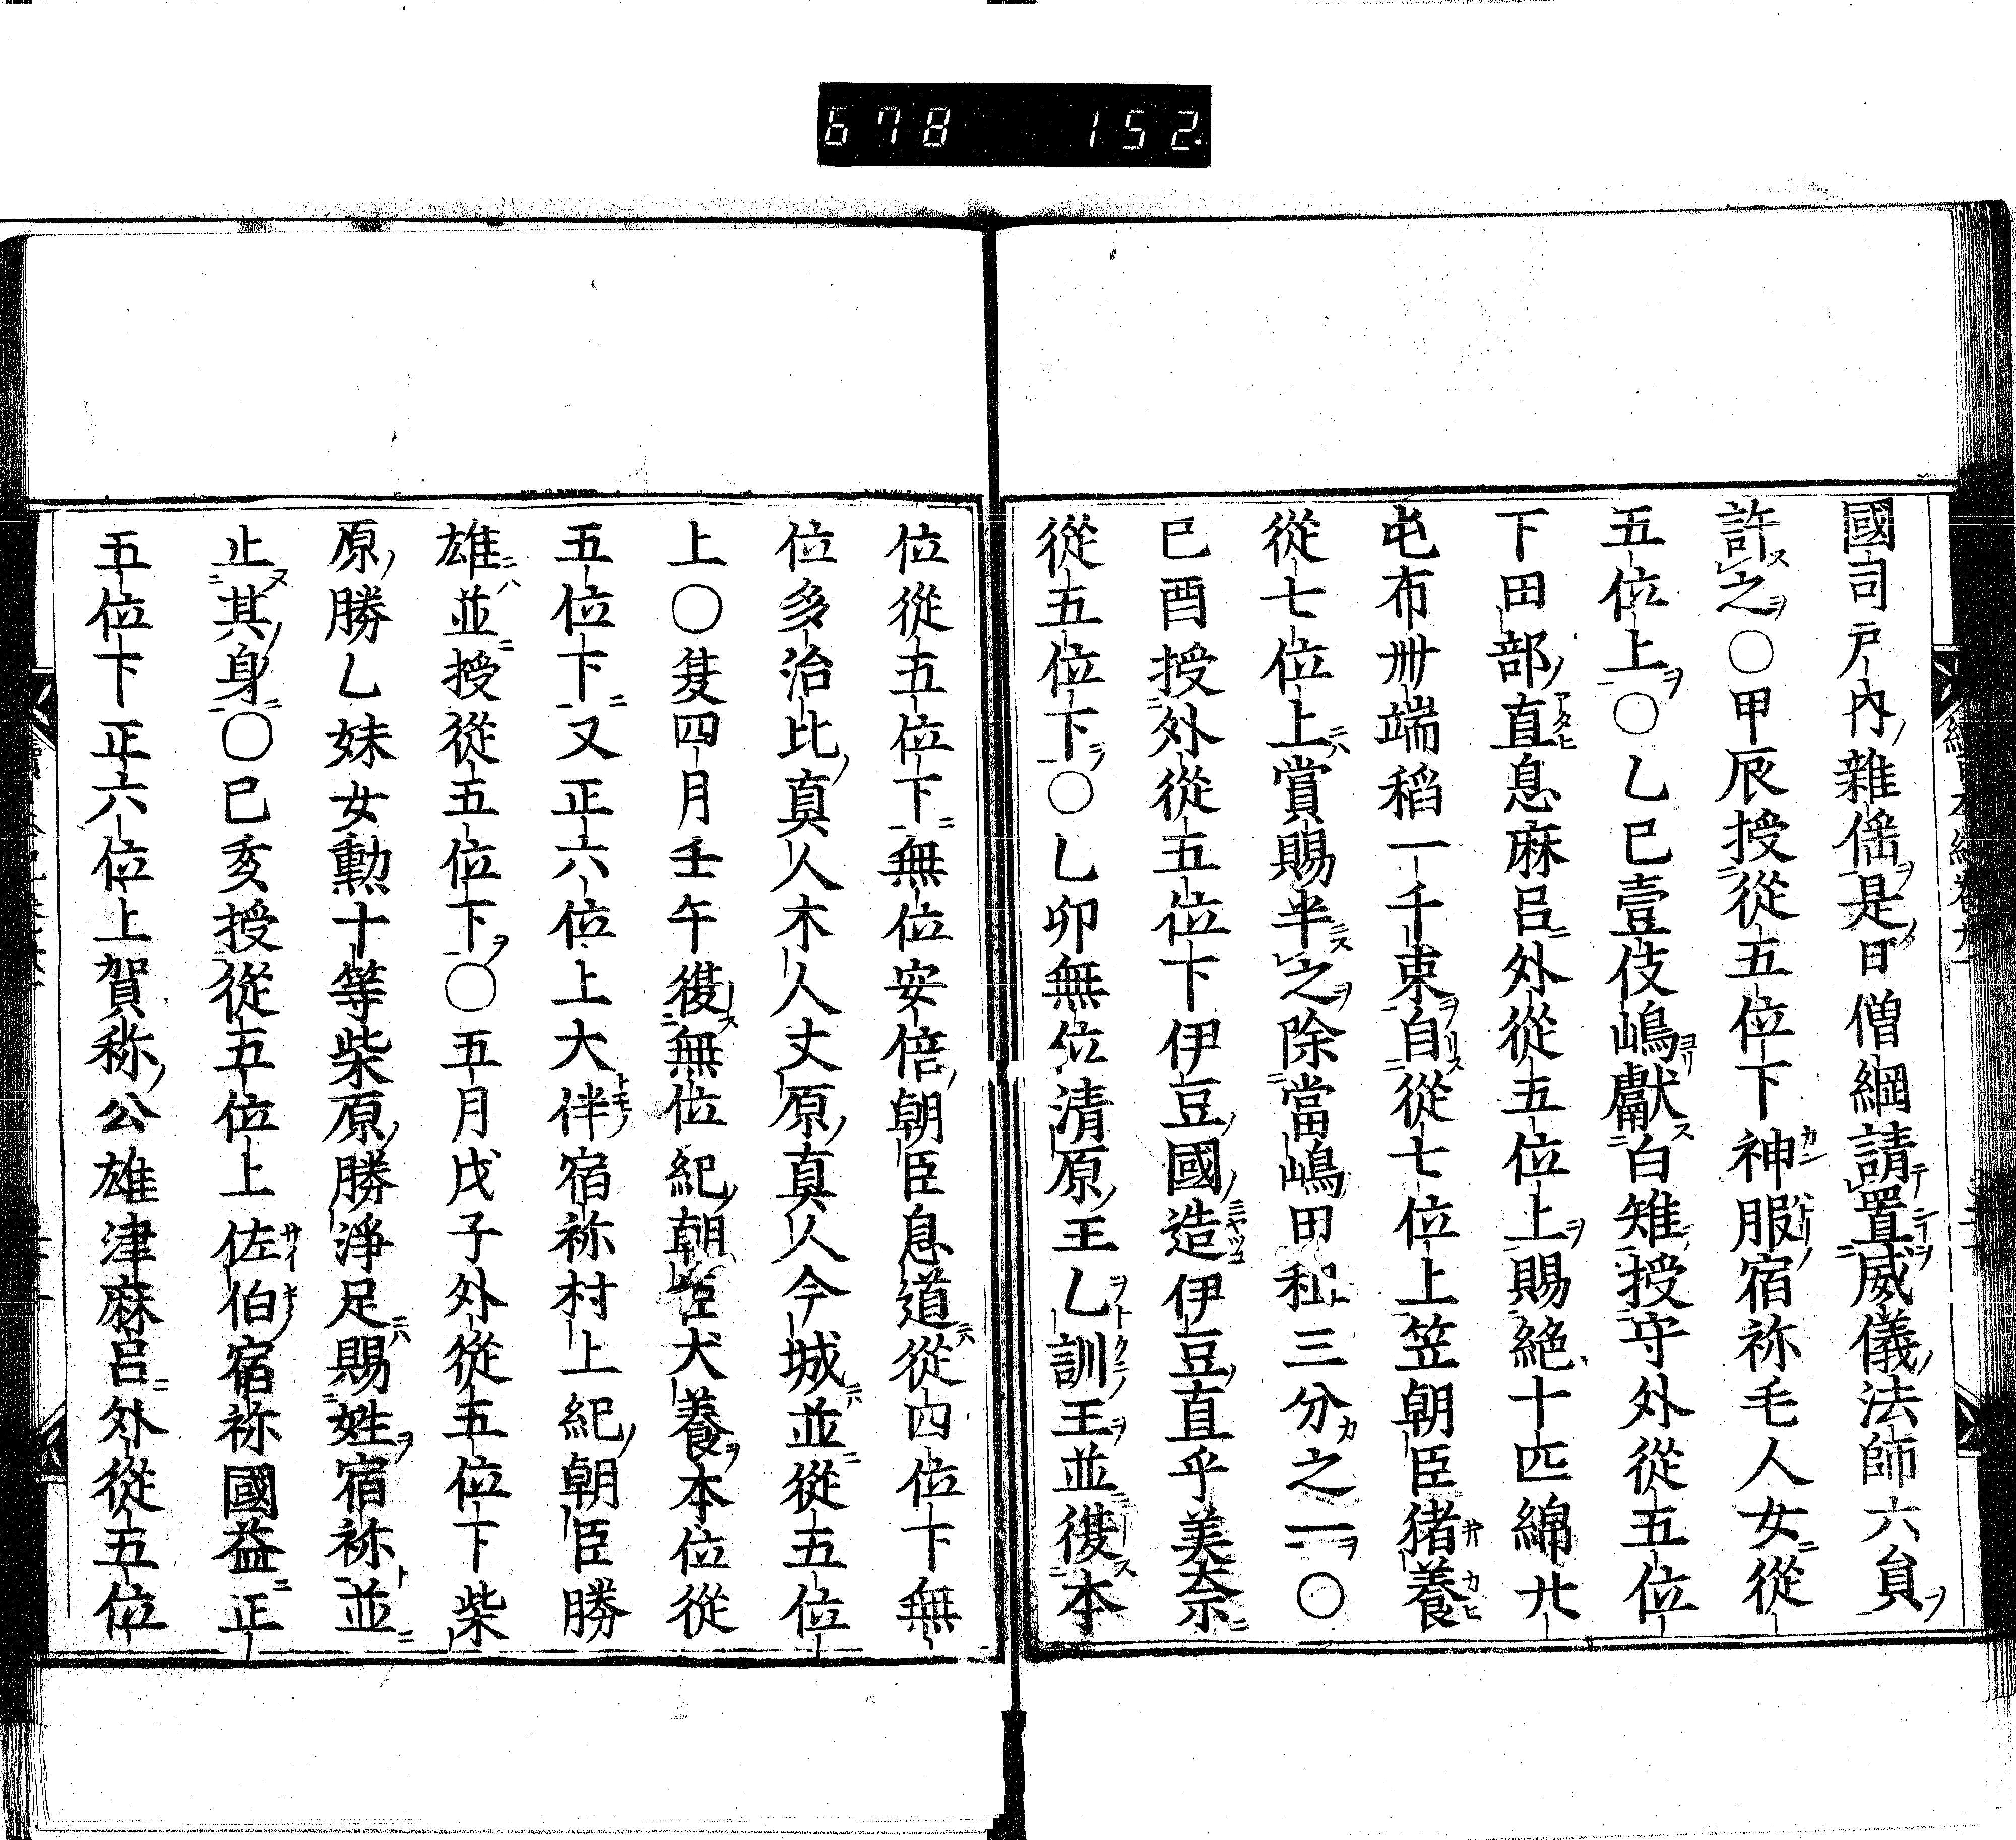 678 152.
國司戸内雜徭是日僧綱請置威儀法師六員
許之○甲辰授從五位下神服宿祢毛人女從
五位上○乙巳壹伎嶋獻白雉授守外從五位
下田部直息麻呂外從五位上賜絁十匹綿廾
屯布卌端稻一千束自從七位上笠朝臣猪養
從七位上賞賜半之除當嶋田租三分之一○
巳酉授外從五位下伊豆國造伊豆直乎美奈
從五位下○乙卯無位清原王乙訓王並復本
位從五位下無位安倍朝臣息道從四位下無
位多治比真人木人丈原真人今城並從五位
上○夏四月壬午復無位紀朝臣犬養本位從
五位下又正六位上大伴宿祢村上紀朝臣勝
雄並授從五位下○五月戊子外從五位下柴
原勝乙妹女勳十等柴原勝淨足賜姓宿祢並
止其身○巳亥授從五位上佐伯宿祢國益正
五位下正六位上賀祢公雄津麻呂外從五位